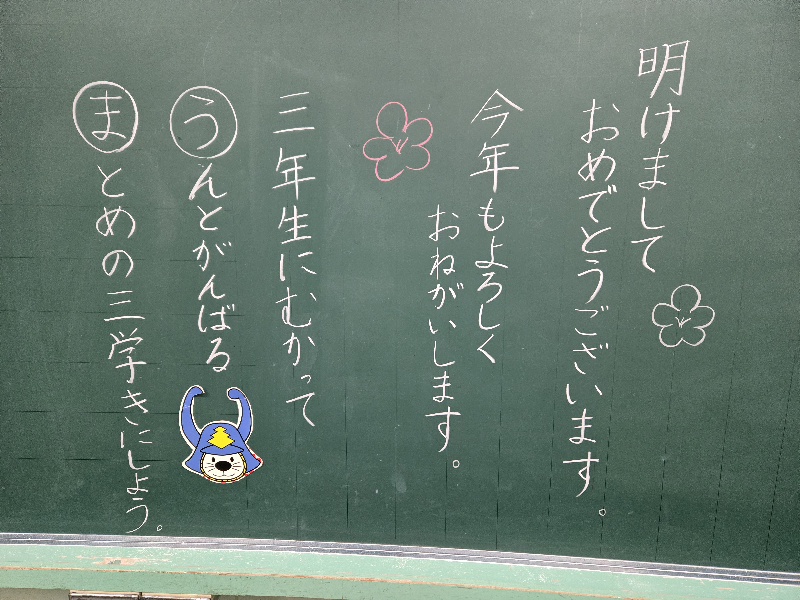 明けまして
おめでとうございます。
今年もよろしく
おねがいします。
三年生にむかって
うんとがんばる
まとめの三学きにしよう。